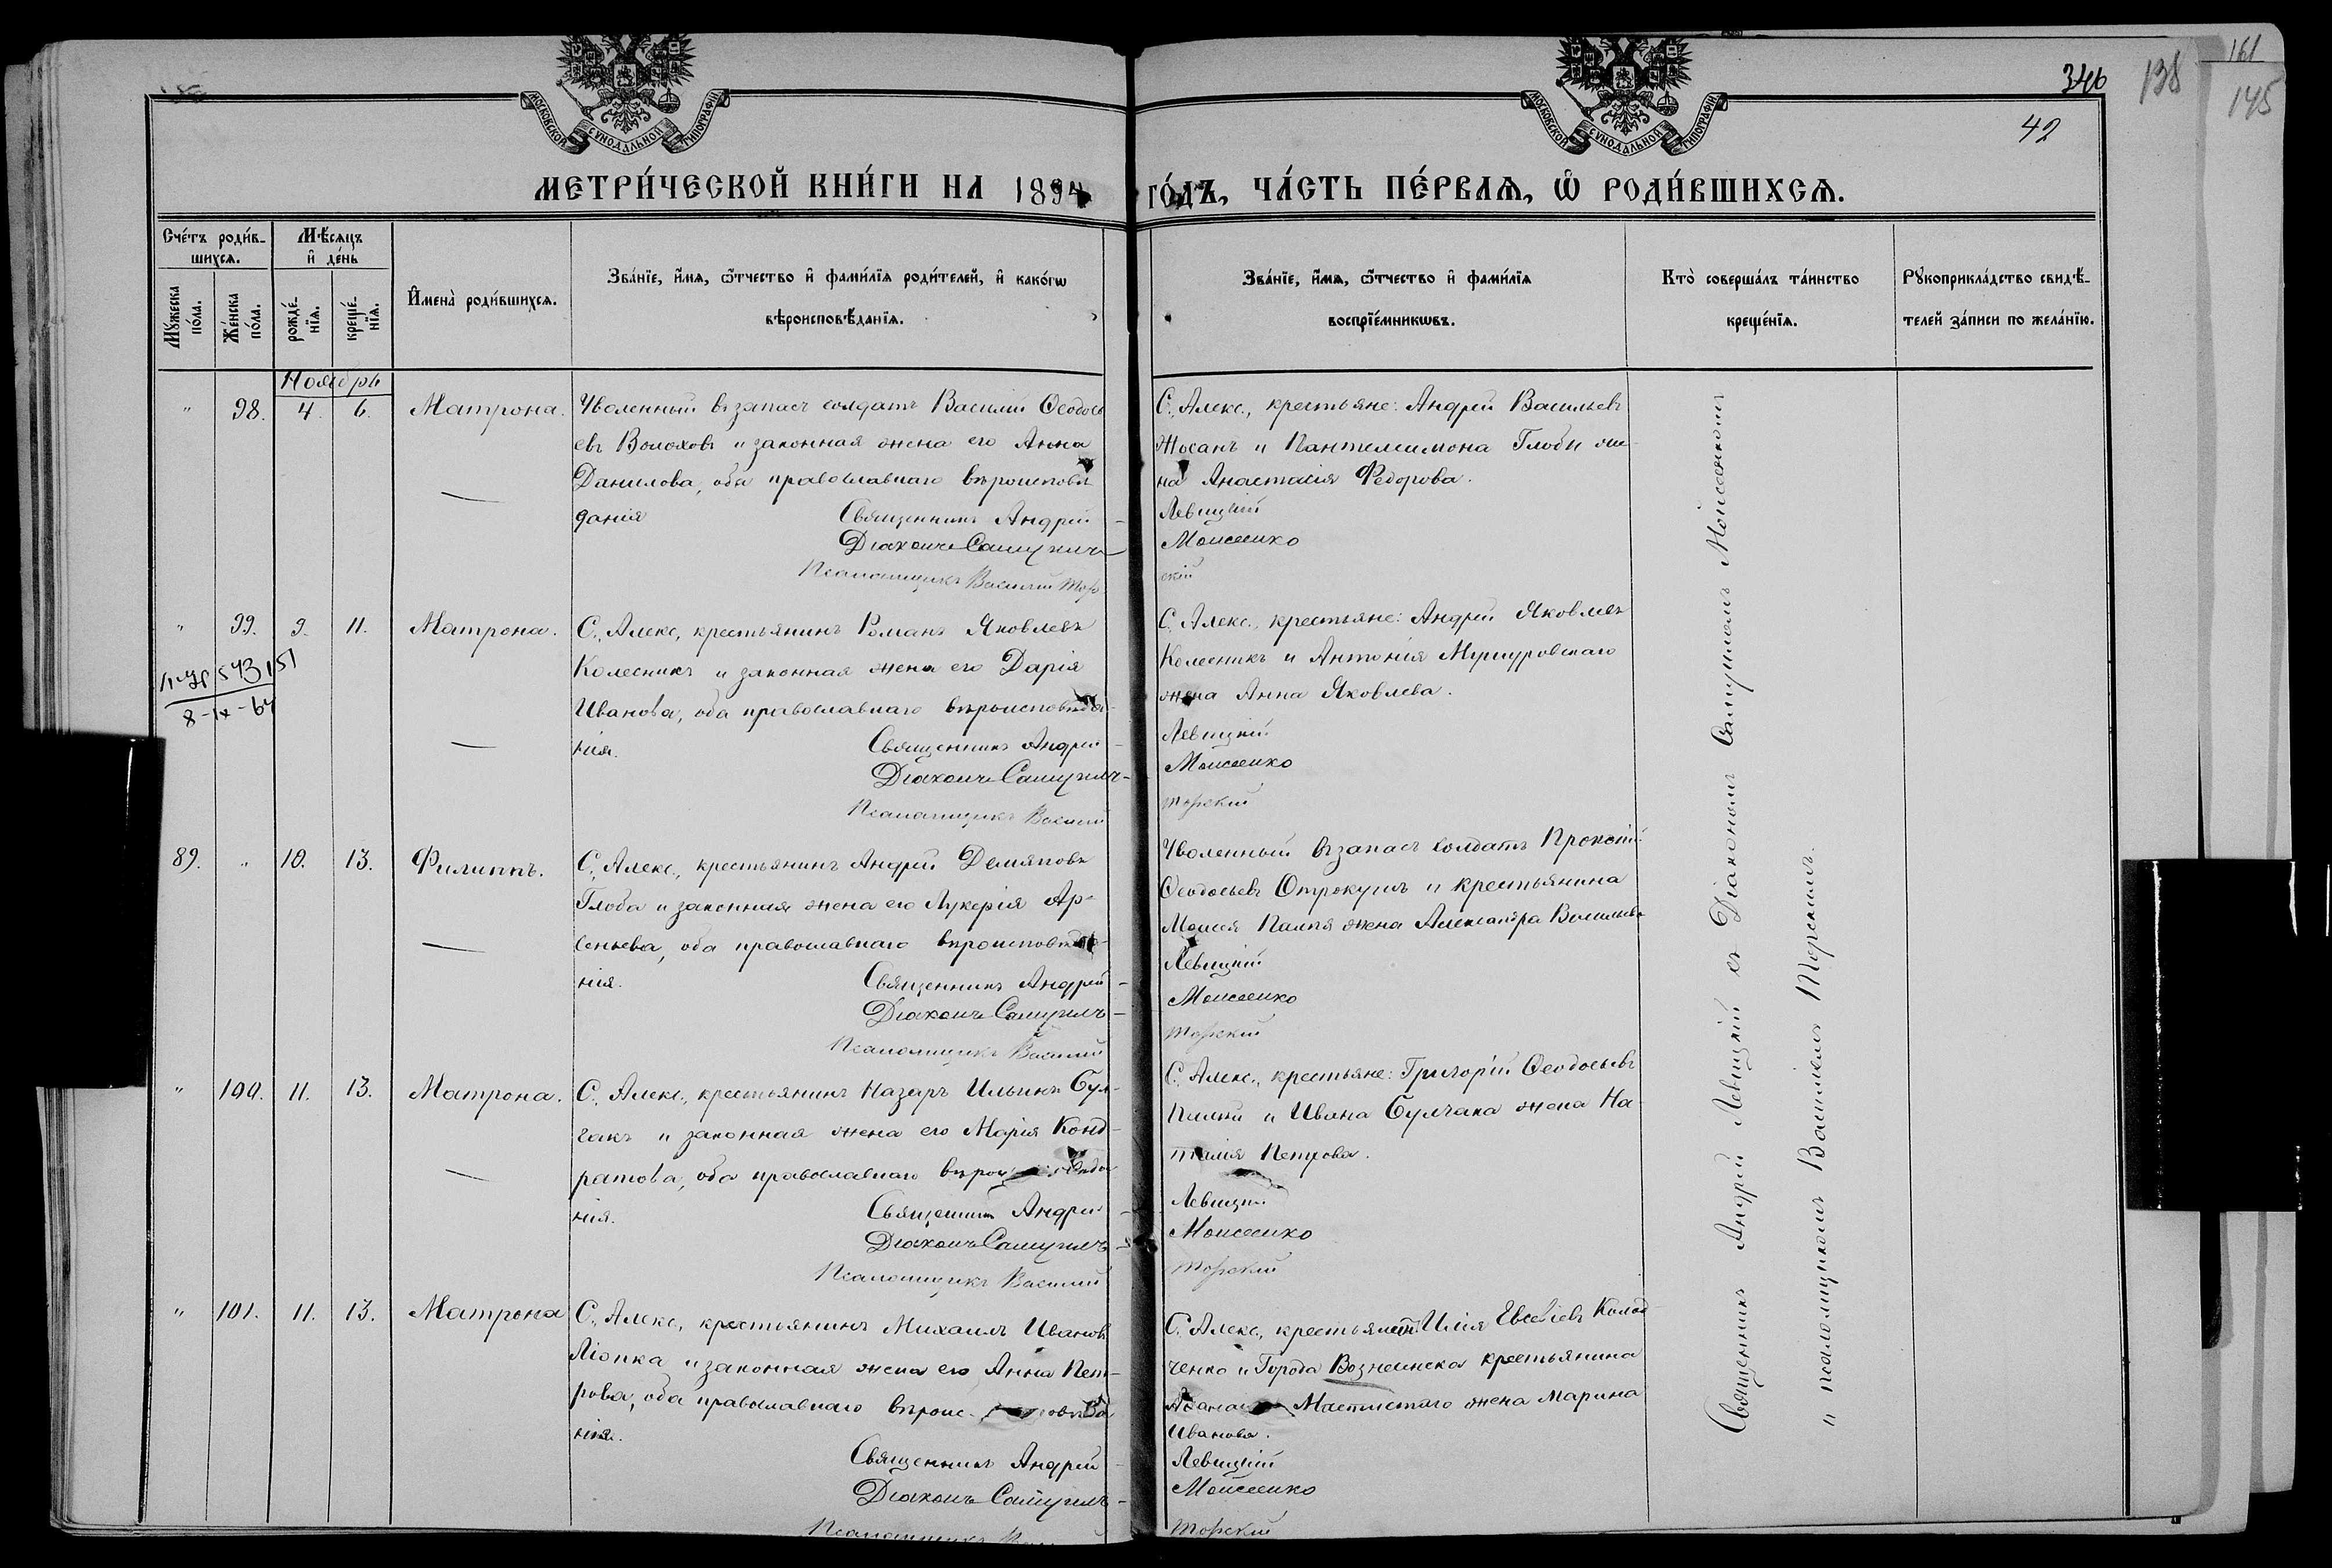 МОСКОВСКОЙ СѴНОДАЛЬНОЙ ТИПОГРАФІИ
МОСКОВСКОЙ СѴНОДАЛЬНОЙ ТИПОГРАФІИ
346
138
161
145
42
МЕТРИ́ЧЕСКОЙ КНИ́ГИ НА 1894 ГО́ДЪ, ЧА́СТЬ ПЕ́РВАѦ, Ѡ҆ РОДИ́ВШИХСѦ.
Сче́тъ роди́в-
шихсѧ.
Мꙋжеска
по́ла.
Же́нска
по́ла.
Мѣ́сяцъ
и҆ де́нь
рожде́-
нїѧ.
креще́-
нїѧ.
И҆мена̀ роди́вшихсѧ.
Зва́нїе, и҆́мѧ, ѻ҆́тчество и҆ фами́лїѧ роди́телей, и҆ како́гѡ
вѣроисповѣ́данїѧ.
Зва́нїе, и҆́мѧ, ѻ҆́тчество и҆ фами́лїѧ
воспрїе́мникѡвъ.
Кто̀ соверша́лъ та́инство
креще́нїѧ.
Рꙋкоприкла́дство свидѣ́-
телей за́писи по жела́нїю.
Ноябрь
" 98. 4. 6. Матрона.
Уволенный въ запасъ солдатъ Василій Ѳеодось
евъ Волоховъ и законная жена его Анна
Данилова, оба православнаго вѣроисповѣ
данія
Священникъ Андрей
Діаконъ Самуилъ
Псаломщикъ Василій Тор
С. Алекс., крестьяне: Андрей Васильевъ
Жосанъ и Пантелеимона Глобы же-
на Анастасія Ѳедорова.
Левицкій
Моисеенко
скій
" 99. 9. 11. Матрона.
8-IX-64
С. Алекс., крестьянинъ Романъ Яковлевъ
Колесникъ и законная жена его Дарія
Иванова, оба православнаго вѣроисповѣда-
нія.
Священникъ Андрей
Діаконъ Самуилъ
Псаломщикъ Василій
С. Алекс., крестьяне: Андрей Яковлевъ
Колесникъ и Антонія
жена Анна Яковлева.
Левицкій
Моисеенко
Торскій
89. " 10. 13. Филиппъ.
С. Алекс., крестьянинъ Андрей Демяновъ
Глоба и законная жена его Лукерія Ар-
сеньева, оба православнаго вѣроисповѣда-
нія.
Священникъ Андрей
Діаконъ Самуилъ
Псаломщикъ Василій
Уволенный въ запасъ солдатъ Прокопій
Ѳеодосьевъ и крестьянина
Моисея жена Александра Васильева
Левицкій
Моисеенко
Торскій
" 100. 11. 13. Матрона.
С. Алекс., крестьянинъ Назаръ Ильинъ Бул-
чакъ и законная жена его Марія Конд-
ратова, оба православнаго вѣроисповѣда
нія.
Священникъ Андрей
Діаконъ Самуилъ
Псаломщикъ Василій
С. Алекс., крестьяне: Григорій Ѳеодосьевъ
и Ивана Булчака жена На-
талія Петрова.
Левицкій
Моисеенко
Торскій
" 101. 11. 13. Матрона
С. Алекс., крестьянинъ Михаилъ Ивановъ
Ліопка и законная жена его Анна Пет-
рова, оба православнаго вѣроисповѣда
нія.
Священникъ Андрей
Діаконъ Самуилъ
С. Алекс., крестьянинъ Илія Евсевіевъ Колод
ченко и Города Вознесенска крестьянина
жена Марина
Иванова.
Левицкій
Моисеенко
Торскій
Священникъ Андрей Левицкій съ Діакономъ Самуиломъ Моисеенкомъ
и псаломщикомъ Василіемъ Торскимъ.